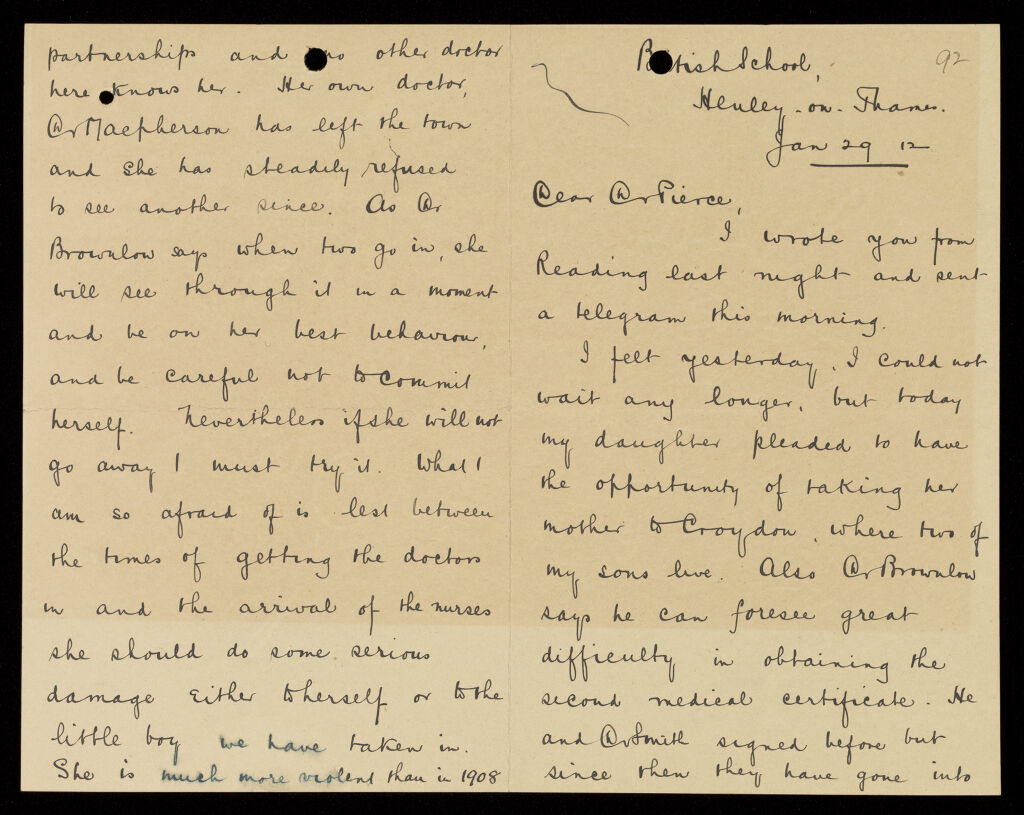 92
British School,
Henley-on-Thames.
Jan 29 12
Dear Dr Pierce,
I wrote you from
Reading last night and sent
a telegram this morning.
I felt yesterday, I could not
wait any longer, but today
my daughter pleaded to have
the opportunity of taking her
mother to Croydon, where two of
my sons live. Also Dr Brownlow
says he can foresee great
difficulty in obtaining the
second medical certificate. He
and Dr Smith signed before but
since then they have gone into
partnerships and no other doctor
here knows her. Her own doctor,
Dr Macpherson has left the town
and she has steadily refused
to see another since. As Dr
Brownlow says when two go in, she
will see through it in a moment
and be on her best behaviour,
and be careful not to commit
herself. Nevertheless if she will not
go away I must try it. What I
am so afraid of is lest between
the times of getting the doctors
in and the arrival of the nurses
she should do some serious
damage either to herself or to the
little boy we have taken in.
She is much more violent than in 1908